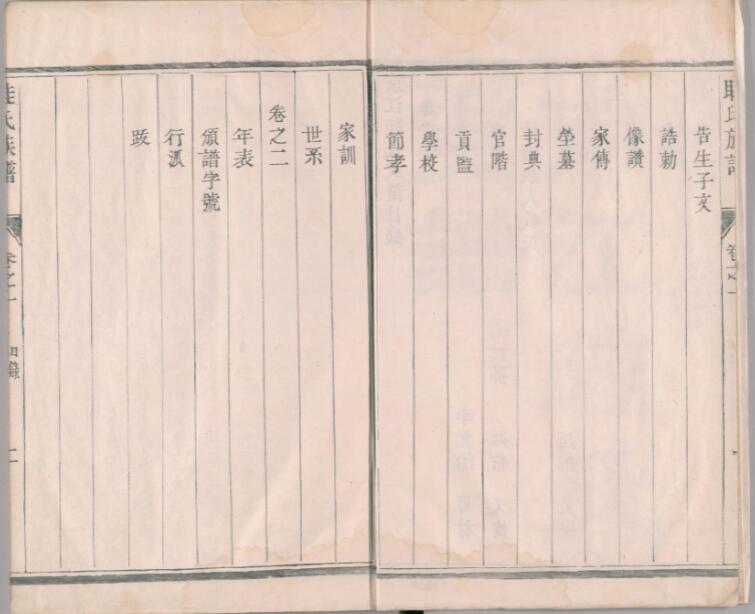 眭氏族譜 卷之一
告生子文
誥勅
像讚
家傳
塋墓
封典
官階
貢監
學校
節孝
家訓
世系
卷之二
年表
頒譜字號
行𣲖
跋
眭氏族譜 卷之一 目錄 二